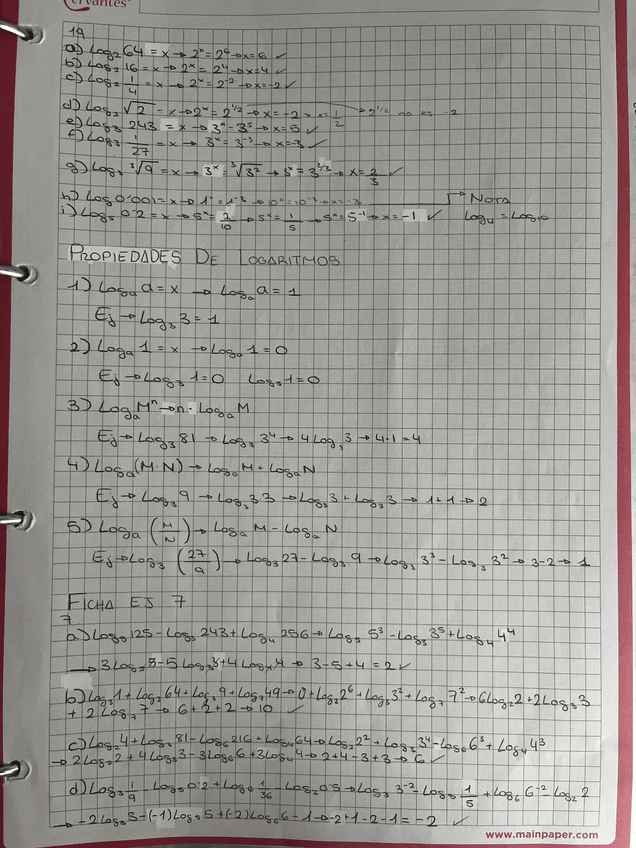 Cervantes
19
a) Log₂64 = x → 2ˣ = 2⁶ → x = 6 ✓
b) Log₂16 = x → 2ˣ = 2⁴ → x = 4 ✓
c) Log₂ 1/4 = x → 2ˣ = 2⁻² → x = -2 ✓
d) Log₂ √2 = x → 2ˣ = 2^1/2 → x = -2 x = 1/2 → 2^1/2 no es -2
e) Log₃ 243 = x → 3ˣ = 3⁵ → x = 5 ✓
f) Log₃ 1/27 = x → 3ˣ = 3⁻³ → x = -3 ✓
g) Log₃ ³√9 = x → 3ˣ = ³√3² → 3ˣ = 3^2/3 → x = 2/3 ✓
h) Log 0'001 = x → 1ˣ = 1⁻³ → 10ˣ = 10⁻³ → x = -3 → NOTA
i) Log₅ 0'2 = x → 5ˣ = 2/10 → 5ˣ = 1/5 → 5ˣ = 5⁻¹ → x = -1 ✓ Log₁₁ = Log₁₀
PROPIEDADES DE LOGARITMOS
1) Logₐ a = x → Logₐ a = 1
Ej → Log₃ 3 = 1
2) Logₐ 1 = x → Logₐ 1 = 0
Ej → Log₃ 1 = 0 Log₅ 1 = 0
3) Logₐ Mⁿ → n · Logₐ M
Ej → Log₃ 81 → Log₃ 3⁴ → 4 Log₃ 3 → 4·1 = 4
4) Logₐ (M·N) → Logₐ M + Logₐ N
Ej → Log₃ 9 → Log₃ 3·3 → Log₃ 3 + Log₃ 3 → 1+1 → 2
5) Logₐ (M/N) → Logₐ M - Logₐ N
Ej → Log₃ (27/9) → Log₃ 27 - Log₃ 9 → Log₃ 3³ - Log₃ 3² → 3-2 → 1
FICHA EJ 7
7
a) Log₅ 125 - Log₃ 243 + Log₄ 256 → Log₅ 5³ - Log₃ 3⁵ + Log₄ 4⁴
→ 3 Log₅ 5 - 5 Log₃ 3 + 4 Log₄ 4 → 3 - 5 + 4 = 2 ✓
b) Log₃ 1 + Log₂ 64 + Log₃ 9 + Log₇ 49 → 0 + Log₂ 2⁶ + Log₃ 3² + Log₇ 7² → 6 Log₂ 2 + 2 Log₃ 3
+ 2 Log₇ 7 → 6 + 2 + 2 → 10 ✓
c) Log₂ 4 + Log₃ 81 - Log₆ 216 + Log₄ 64 → Log₂ 2² + Log₃ 3⁴ - Log₆ 6³ + Log₄ 4³
→ 2 Log₂ 2 + 4 Log₃ 3 - 3 Log₆ 6 + 3 Log₄ 4 → 2 + 4 - 3 + 3 → 6 ✓
d) Log₃ 1/9 - Log₅ 0'2 + Log₆ 1/36 - Log₂ 0'5 → Log₃ 3⁻² - Log₅ 1/5 + Log₆ 6⁻² - Log₂ 2
→ -2 Log₃ 3 - (-1) Log₅ 5 + (-2) Log₆ 6 - 1 → -2 + 1 - 2 - 1 = -2 ✓
www.mainpaper.com